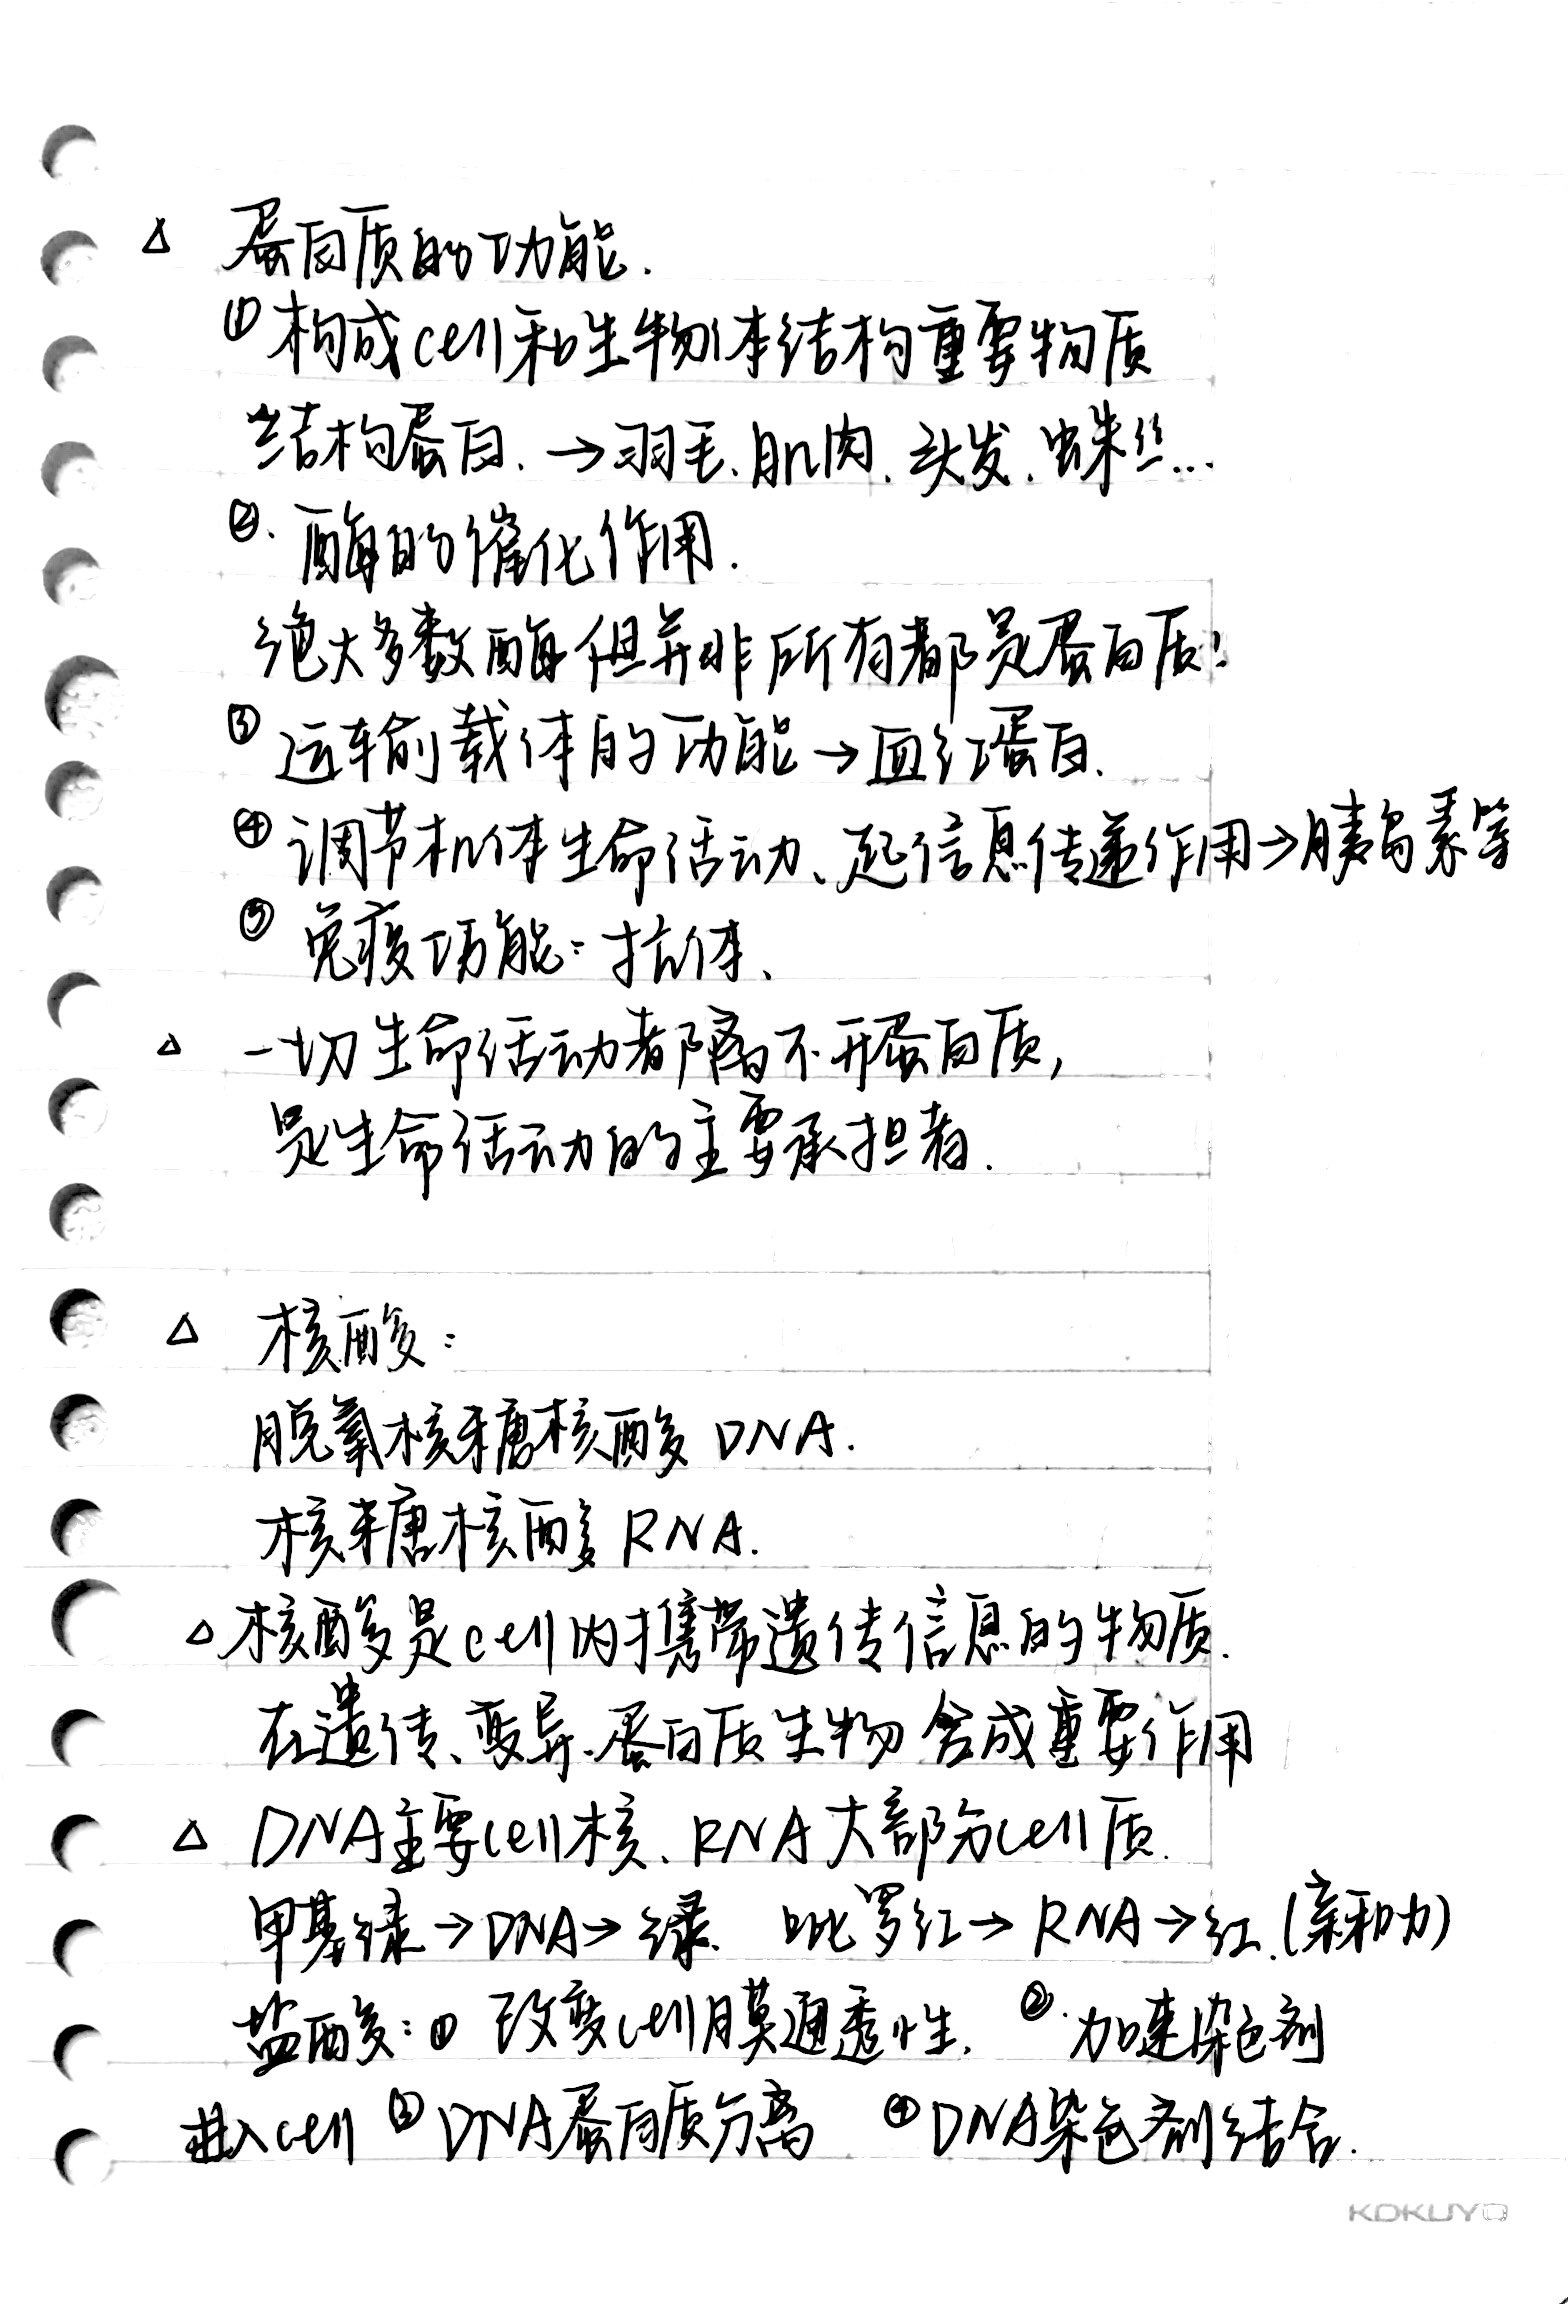 △ 蛋白质的功能.
① 构成cell和生物体结构重要物质
结构蛋白. →羽毛、肌肉、头发、蛛丝...
②. 酶的催化作用.
绝大多数酶但并非所有都是蛋白质!
③ 运输载体的功能→血红蛋白.
④ 调节机体生命活动、起信息传递作用→胰岛素等
⑤ 免疫功能: 抗体、
△ 一切生命活动都离不开蛋白质,
是生命活动的主要承担者.
△ 核酸:
脱氧核糖核酸 DNA.
核糖核酸 RNA.
△ 核酸是cell内携带遗传信息的物质.
在遗传、变异、蛋白质生物合成重要作用
△ DNA主要cell核、RNA大部分cell质.
甲基绿→DNA→绿. 吡罗红→RNA→红.(亲和力)
盐酸: ① 改变cell膜通透性. ②. 加速染色剂
进入cell ③ DNA蛋白质分离 ④ DNA染色剂结合.
KOKUYO